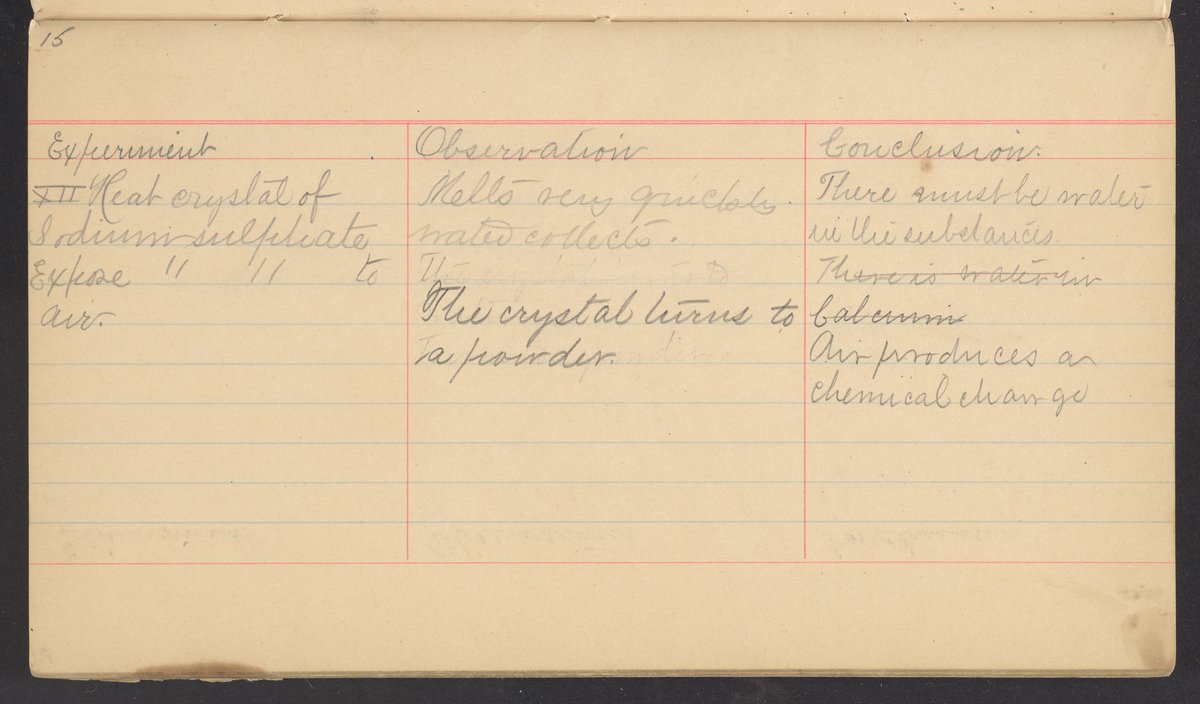 15
Experiment
XII Heat crystal of
Sodium sulphate
Expose " " to
air.
Observation
Melts very quickly.
water collects.
The crystal turns to
The crystal turns to
a powder.
Conclusion.
There must be water
in the substances.
There is water in
Calcium
Air produces a
chemical change